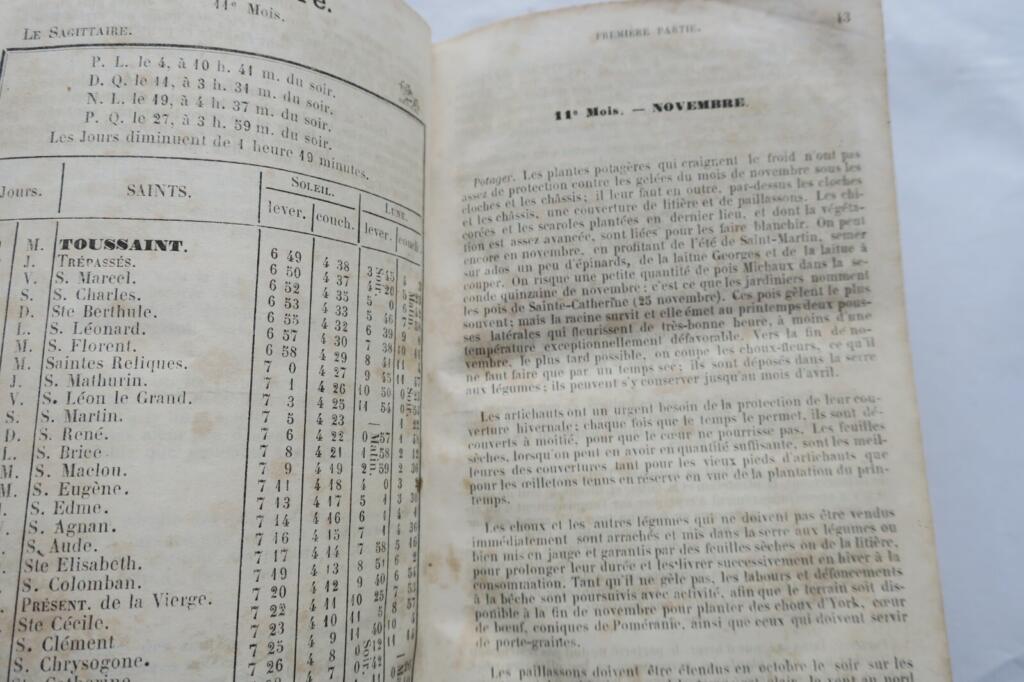 11e Mois.
LE SAGITTAIRE.
P. L. le 4, à 10 h. 41 m. du soir.
D. Q. le 11, à 3 h. 31 m. du soir.
N. L. le 19, à 4 h. 37 m. du soir.
P. Q. le 27, à 3 h. 59 m. du soir.
Les Jours diminuent de 1 heure 19 minutes.
Jours. SAINTS. SOLEIL. LUNE.
lever. couch. lever. couch.
M. TOUSSAINT. 6 49 4 38 3 45
J. TRÉPASSÉS. 6 50 4 37 4 26
V. S. Marcel. 6 52 4 35 5 0
S. S. Charles. 6 53 4 33 5 46
D. Ste Berthule. 6 55 4 32 6 39
L. S. Léonard. 6 57 4 30 7 38
M. S. Florent. 6 58 4 29 8 41
M. Saintes Reliques. 7 0 4 27 9 45
J. S. Mathurin. 7 1 4 26 10 50
V. S. Léon le Grand. 7 3 4 25 11 54
S. S. Martin. 7 5 4 23 —
D. S. René. 7 6 4 22 0 57
L. S. Brice 7 8 4 21 1 58
M. S. Maclou. 7 9 4 19 2 59
M. S. Eugène. 7 11 4 18 4 0
S. Edme. 7 13 4 17 5 1
S. Agnan. 7 14 4 16 6 1
S. Aude. 7 16 4 15 7 1
Ste Elisabeth. 7 17 4 14 7 58
S. Colomban. 7 19 4 13 8 51
PRÉSENT. de la Vierge. 7 20 4 12 9 40
Ste Cécile. 7 22 4 11 10 25
S. Clément 7 23 4 10 11 5
S. Chrysogone. 7 25 4 9 11 40
Ste Catherine. 7 26 4 8 0 12
PREMIÈRE PARTIE. 43
11e Mois. — NOVEMBRE.
Potager. Les plantes potagères qui craignent le froid n'ont pas
assez de protection contre les gelées du mois de novembre sous les
cloches et les châssis; il leur faut en outre, par-dessus les cloches
et les châssis, une couverture de litière et de paillassons. Les chi-
corées et les scaroles plantées en dernier lieu, et dont la végéta-
tion est assez avancée, sont liées pour les faire blanchir. On peut
encore en novembre, en profitant de l'été de Saint-Martin, semer
sur ados un peu d'épinards, de la laitue Georges et de la laitue à
couper. On risque une petite quantité de pois Michaux dans la se-
conde quinzaine de novembre; c'est ce que les jardiniers nomment
les pois de Sainte-Catherine (25 novembre). Ces pois gèlent le plus
souvent; mais la racine survit et elle émet au printemps deux pous-
ses latérales qui fleurissent de très-bonne heure, à moins d'une
température exceptionnellement défavorable. Vers la fin de no-
vembre, le plus tard possible, on coupe les choux-fleurs, ce qu'il
ne faut faire que par un temps sec; ils sont déposés dans la serre
aux légumes; ils peuvent s'y conserver jusqu'au mois d'avril.
Les artichauts ont un urgent besoin de la protection de leur cou-
verture hivernale; chaque fois que le temps le permet, ils sont dé-
couverts à moitié, pour que le cœur ne pourrisse pas. Les feuilles
sèches, lorsqu'on peut en avoir en quantité suffisante, sont les meil-
leures des couvertures tant pour les vieux pieds d'artichauts que
pour les œilletons tenus en réserve en vue de la plantation du prin-
temps.
Les choux et les autres légumes qui ne doivent pas être vendus
immédiatement sont arrachés et mis dans la serre aux légumes ou
bien mis en jauge et garantis par des feuilles sèches ou de la litière,
pour prolonger leur durée et les livrer successivement en hiver à la
consommation. Tant qu'il ne gèle pas, les labours et défoncements
à la bêche sont poursuivis avec activité, afin que le terrain soit dis-
ponible à la fin de novembre pour planter des choux d'York, cœur
de bœuf, coniques de Poméranie, ainsi que ceux qui doivent servir
de porte-graines.
Les paillassons doivent être étendus en octobre le soir sur les